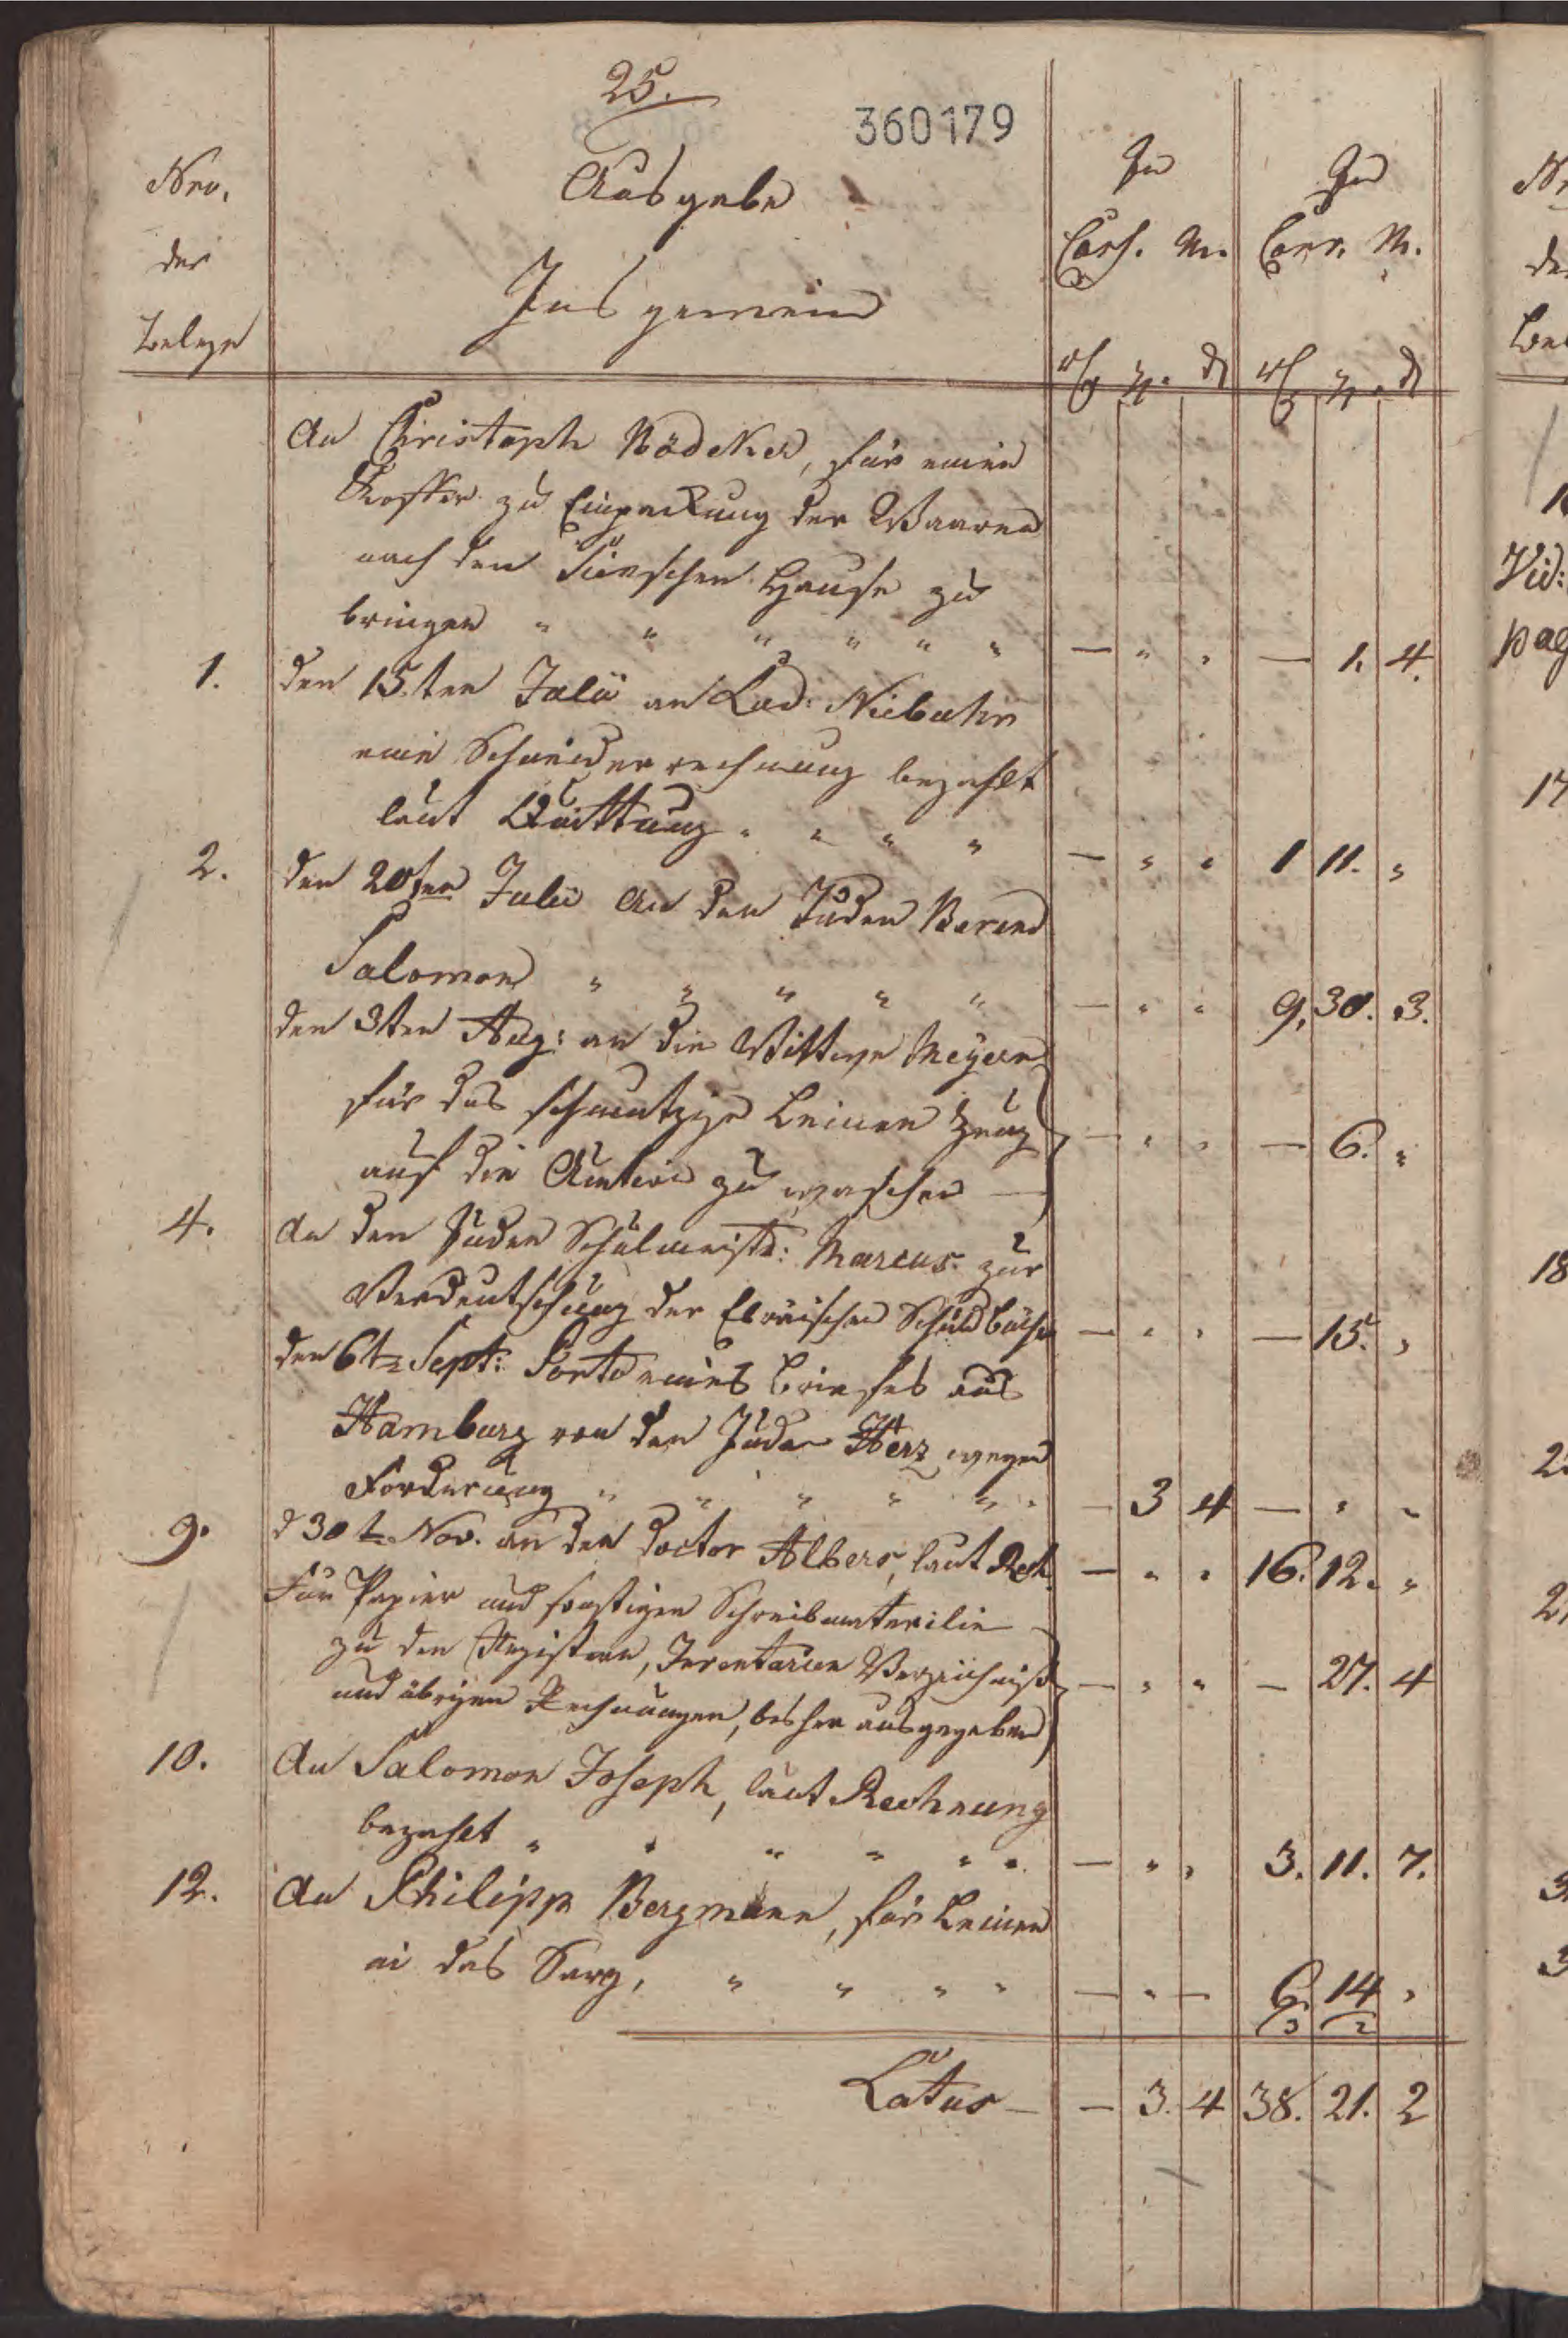 25.
360179
Nro. Ausgabe In In
der Cass. M. Conv. M.
Belege Insgemein
rthl gr. d rthl gr. d
An Christoph Nödeker, für einen
Koffer zu Einpackung der Waaren
nach den Hause zu
bringen " " " " " " — " " — 1. 4.
1. den 15ten Julii an Lud: Niebuhr
eine Schneiderrechnung bezahlt
laut Quittung " " " " — " " 1 11. "
2. den 20ten Julii An den Juden Berend
Salomon " " " " " — " " 9. 30. 3.
den 3ten Aug: an die Wittwe Meyern
für das schmutzige Leinen Zeug — " " — 6. "
auf die Auction zu waschen —
4. An den Juden Schulmeistr: Marcus zur
Verdeutschung der Ebräischen Schuldbücher — " " — 15. "
den 6t Sept: Porto eines Briefes aus
Hamburg von den Juden Herz wegen
Forderung " " " " " " — 3 4 — " "
9. d 30t Nov. an den Doctor Albers, laut Rech. — " " 16. 12. "
Für Papier und sonstigen Schreibmaterilie
zu den Registern, Inventarien Verzeichniß — " " — 27. 4
und übrigen Rechnungen, bisher ausgegeben
10. An Salomon Joseph, laut Rechnung
bezahlt " " " " " " — " " 3. 11. 7.
12. An Philipp Bergmann, für Leinen
in das Sarg, " " " " — " — 6. 14 "
Latus — — 3. 4 38. 21. 2